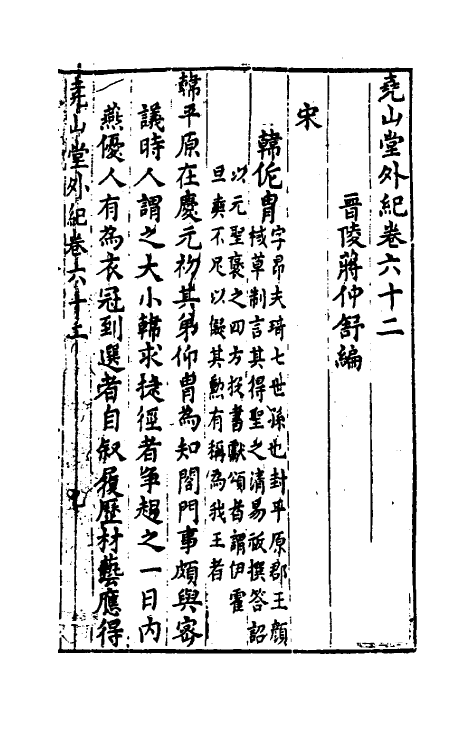 堯山堂外紀卷六十二
晋陵蔣仲舒編
宋
韓侂胄
字昂夫琦七世孫也封平原郡王顔
棫草制言其得聖之清易祓撰答詔
以元聖褒之四方投書獻頌者謂伊霍
旦奭不足以儗其勲有稱為我王者
韓平原在慶元初其弟仰胄為知閤門事頗與密
議時人謂之大小韓求捷徑者争趨之一日内
燕優人有為衣冠到選者自叙履歷材藝應得
堯山堂外紀卷六十二